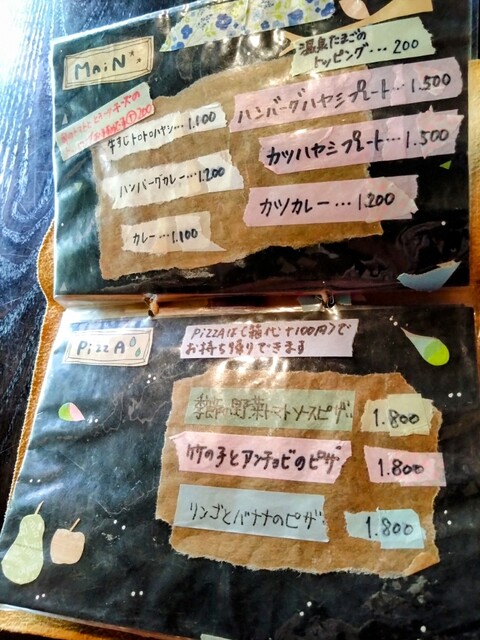 MaiN
温泉たまごの
トッピング…200
牛すじトロトロハヤシ…1.100
ハンバーグハヤシプレート…1.500
カツハヤシプレート…1.500
ハンバーグカレー…1.200
カツカレー…1.200
カレー…1.100
PizzA
PizzAは〈箱代+100円〉で
お持ち帰りできます
季節の野菜トマトソースピザ 1.800
竹の子とアンチョビのピザ 1.800
リンゴとバナナのピザ 1.800